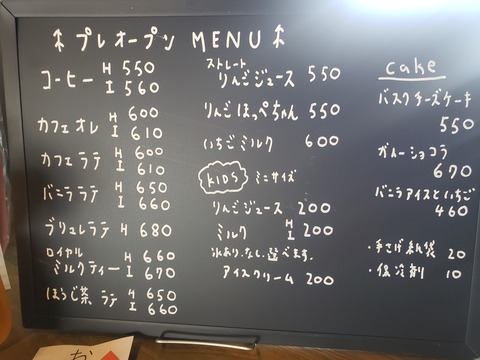 ↑プレオープン MENU↑
コーヒー H 550
I 560
カフェオレ H 600
I 610
カフェラテ H 600
I 610
バニララテ H 650
I 660
ブリュレラテ H 680
ロイヤル
ミルクティー H 660
I 670
ほうじ茶 ラテ H 650
I 660
ストレート
りんごジュース 550
りんごほっぺちゃん 550
いちごミルク 600
KIDS ミニサイズ
りんごジュース 200
ミルク H
I 200
氷あり、なし、選べます。
アイスクリーム 200
cake
バスクチーズケーキ
550
ガトーショコラ
670
バニラアイスといちご
460
・手さげ紙袋 20
・保冷剤 10